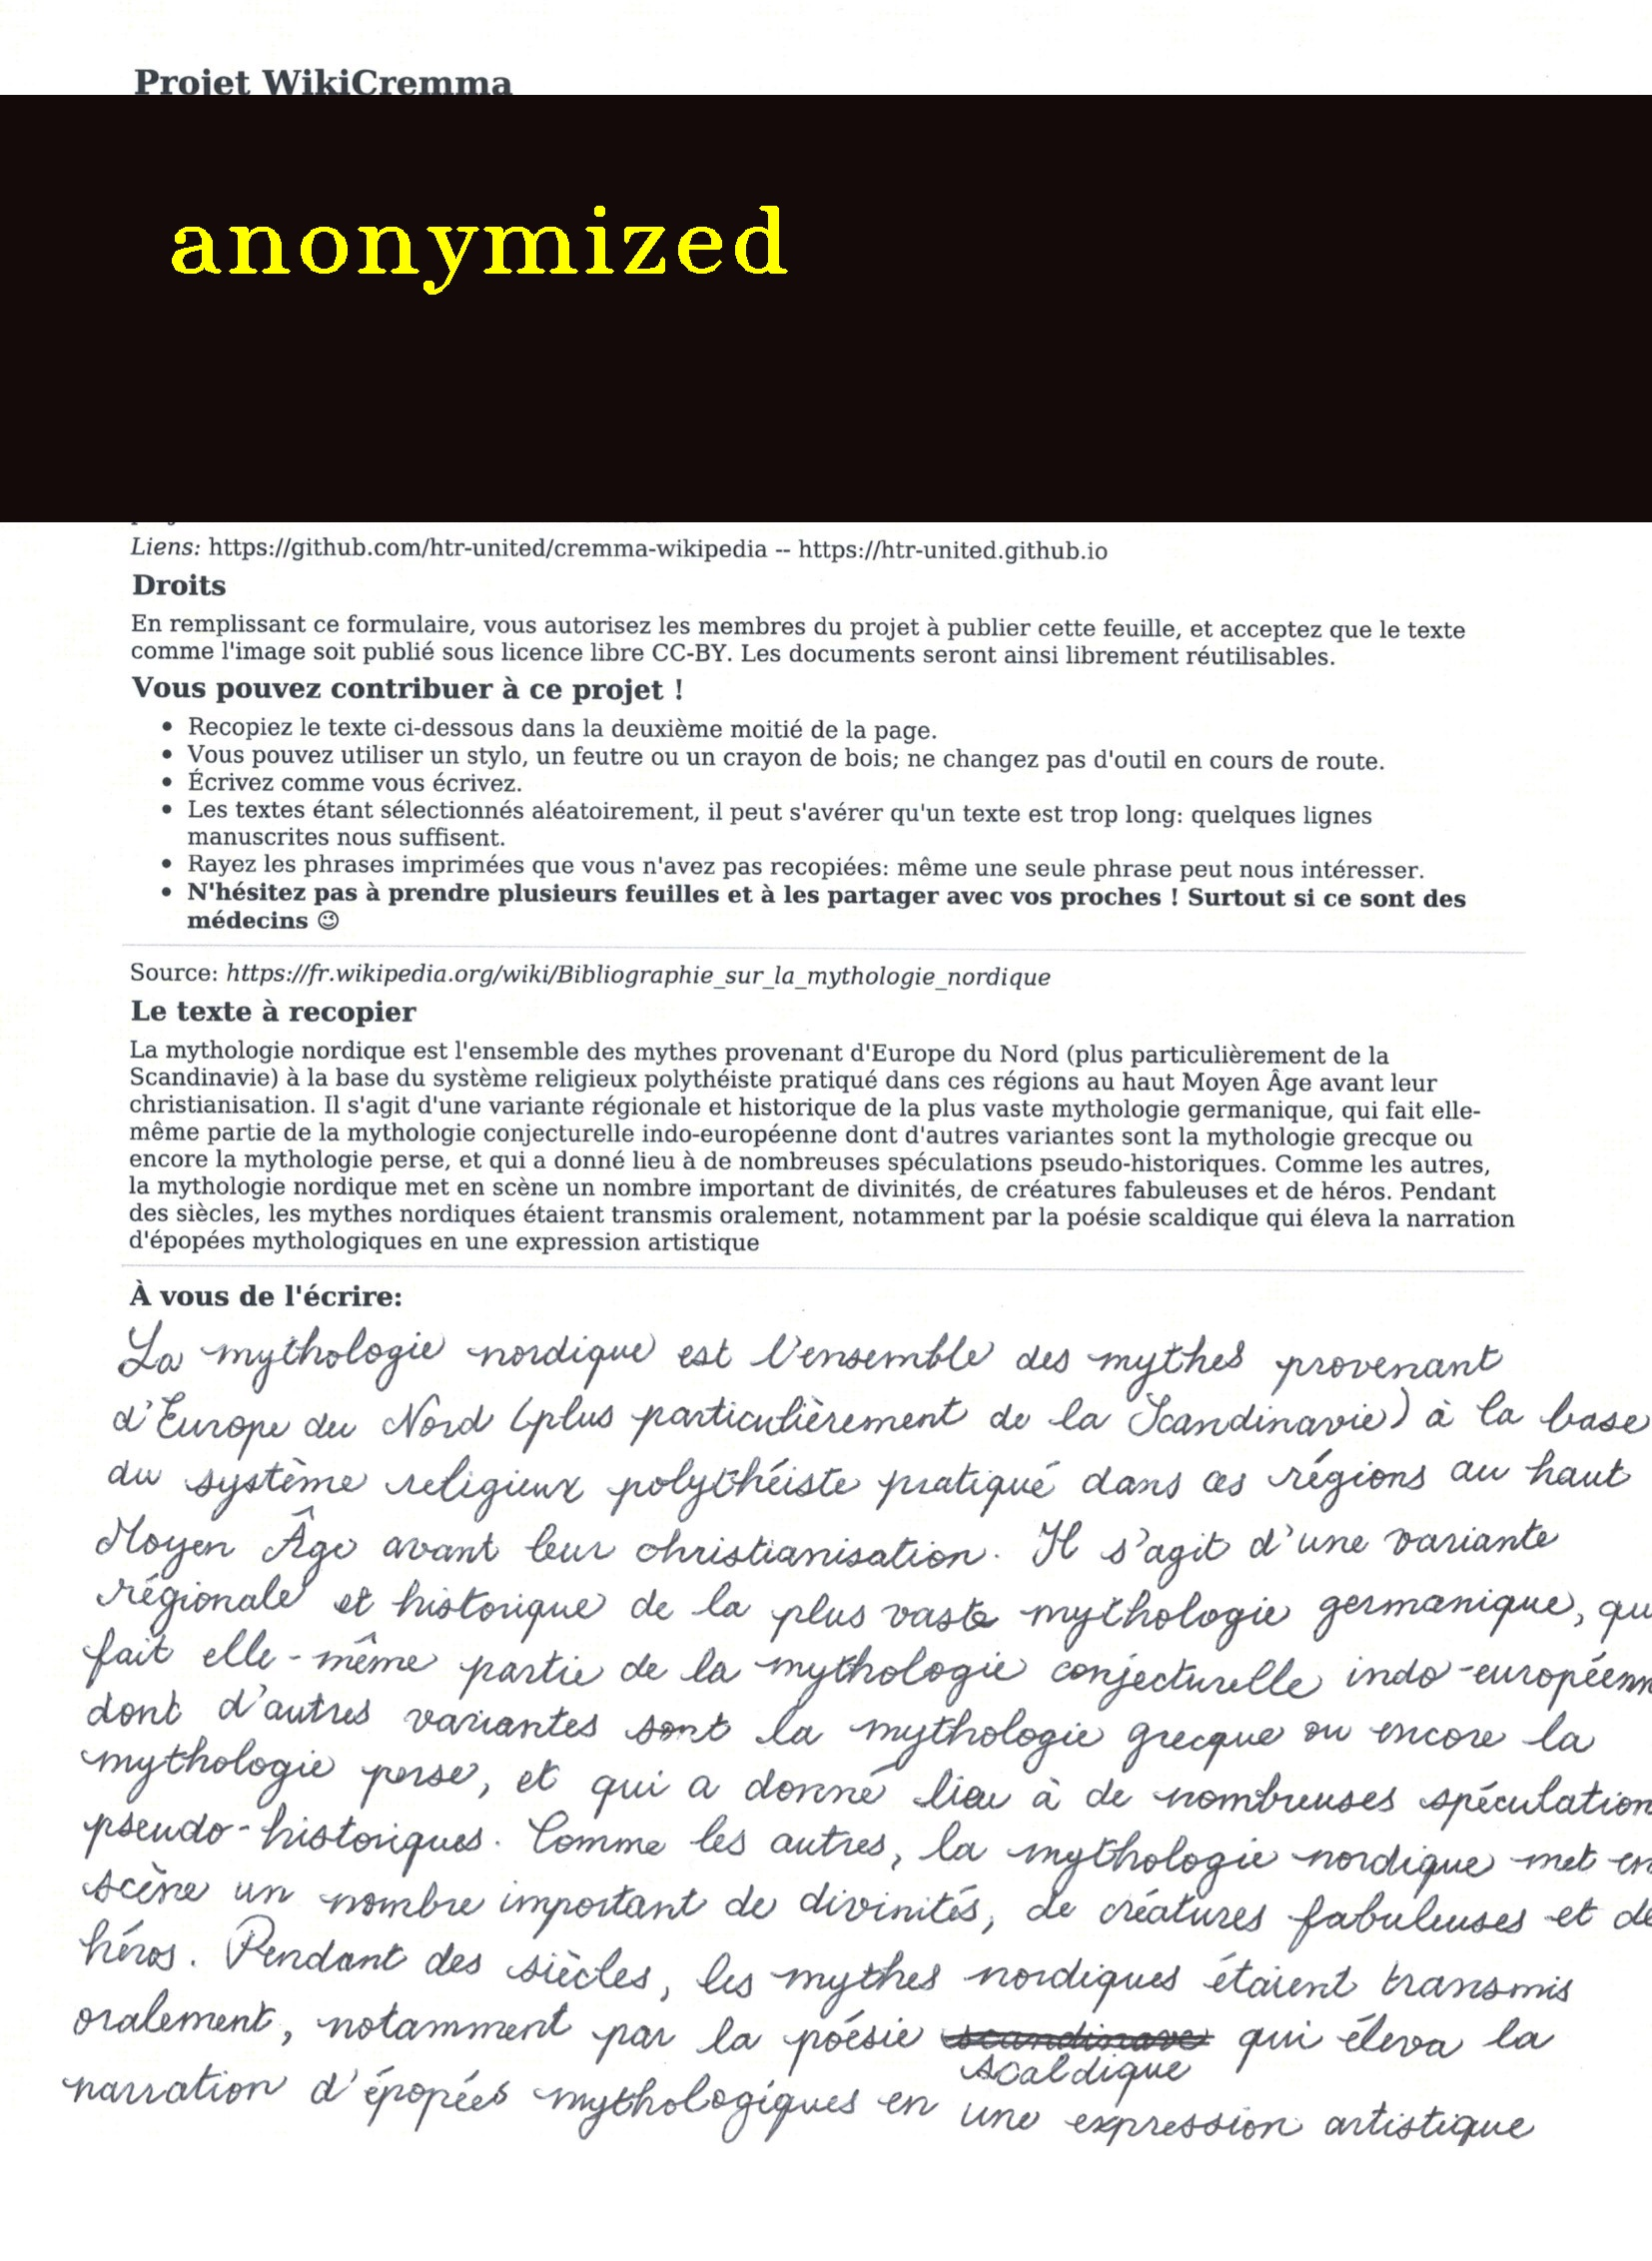 Projet WikiCremma
anonymized
Liens: https://github.com/htr-united/cremma-wikipedia -- https://htr-united.github.io
Droits
En remplissant ce formulaire, vous autorisez les membres du projet à publier cette feuille, et acceptez que le texte
comme l'image soit publié sous licence libre CC-BY. Les documents seront ainsi librement réutilisables.
Vous pouvez contribuer à ce projet !
• Recopiez le texte ci-dessous dans la deuxième moitié de la page.
• Vous pouvez utiliser un stylo, un feutre ou un crayon de bois; ne changez pas d'outil en cours de route.
• Écrivez comme vous écrivez.
• Les textes étant sélectionnés aléatoirement, il peut s'avérer qu'un texte est trop long: quelques lignes
manuscrites nous suffisent.
• Rayez les phrases imprimées que vous n'avez pas recopiées: même une seule phrase peut nous intéresser.
• N'hésitez pas à prendre plusieurs feuilles et à les partager avec vos proches ! Surtout si ce sont des
médecins 😉
Source: https://fr.wikipedia.org/wiki/Bibliographie_sur_la_mythologie_nordique
Le texte à recopier
La mythologie nordique est l'ensemble des mythes provenant d'Europe du Nord (plus particulièrement de la
Scandinavie) à la base du système religieux polythéiste pratiqué dans ces régions au haut Moyen Âge avant leur
christianisation. Il s'agit d'une variante régionale et historique de la plus vaste mythologie germanique, qui fait elle-
même partie de la mythologie conjecturelle indo-européenne dont d'autres variantes sont la mythologie grecque ou
encore la mythologie perse, et qui a donné lieu à de nombreuses spéculations pseudo-historiques. Comme les autres,
la mythologie nordique met en scène un nombre important de divinités, de créatures fabuleuses et de héros. Pendant
des siècles, les mythes nordiques étaient transmis oralement, notamment par la poésie scaldique qui éleva la narration
d'épopées mythologiques en une expression artistique
À vous de l'écrire:
La mythologie nordique est l'ensemble des mythes provenant
d'Europe du Nord (plus particulièrement de la Scandinavie) à la base
du système religieux polythéiste pratiqué dans ces régions au haut
Moyen Âge avant leur christianisation. Il s'agit d'une variante
régionale et historique de la plus vaste mythologie germanique, qu
fait elle-même partie de la mythologie conjecturelle indo-européenn
dont d'autres variantes sont la mythologie grecque ou encore la
mythologie perse, et qui a donné lieu à de nombreuses spéculation
pseudo-historiques. Comme les autres, la mythologie nordique met en
scène un nombre important de divinités, de créatures fabuleuses et de
héros. Pendant des siècles, les mythes nordiques étaient transmis
oralement, notamment par la poésie scandinave qui éleva la
scaldique
narration d'épopées mythologiques en une expression artistique